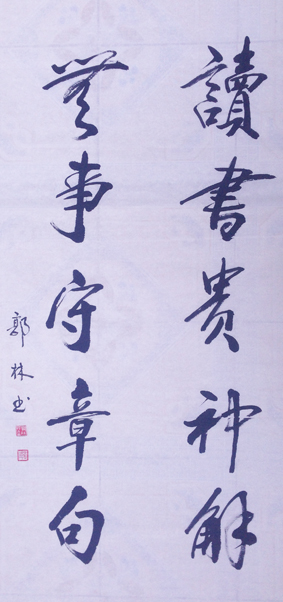 讀書貴神解
無事守章句
郭林书